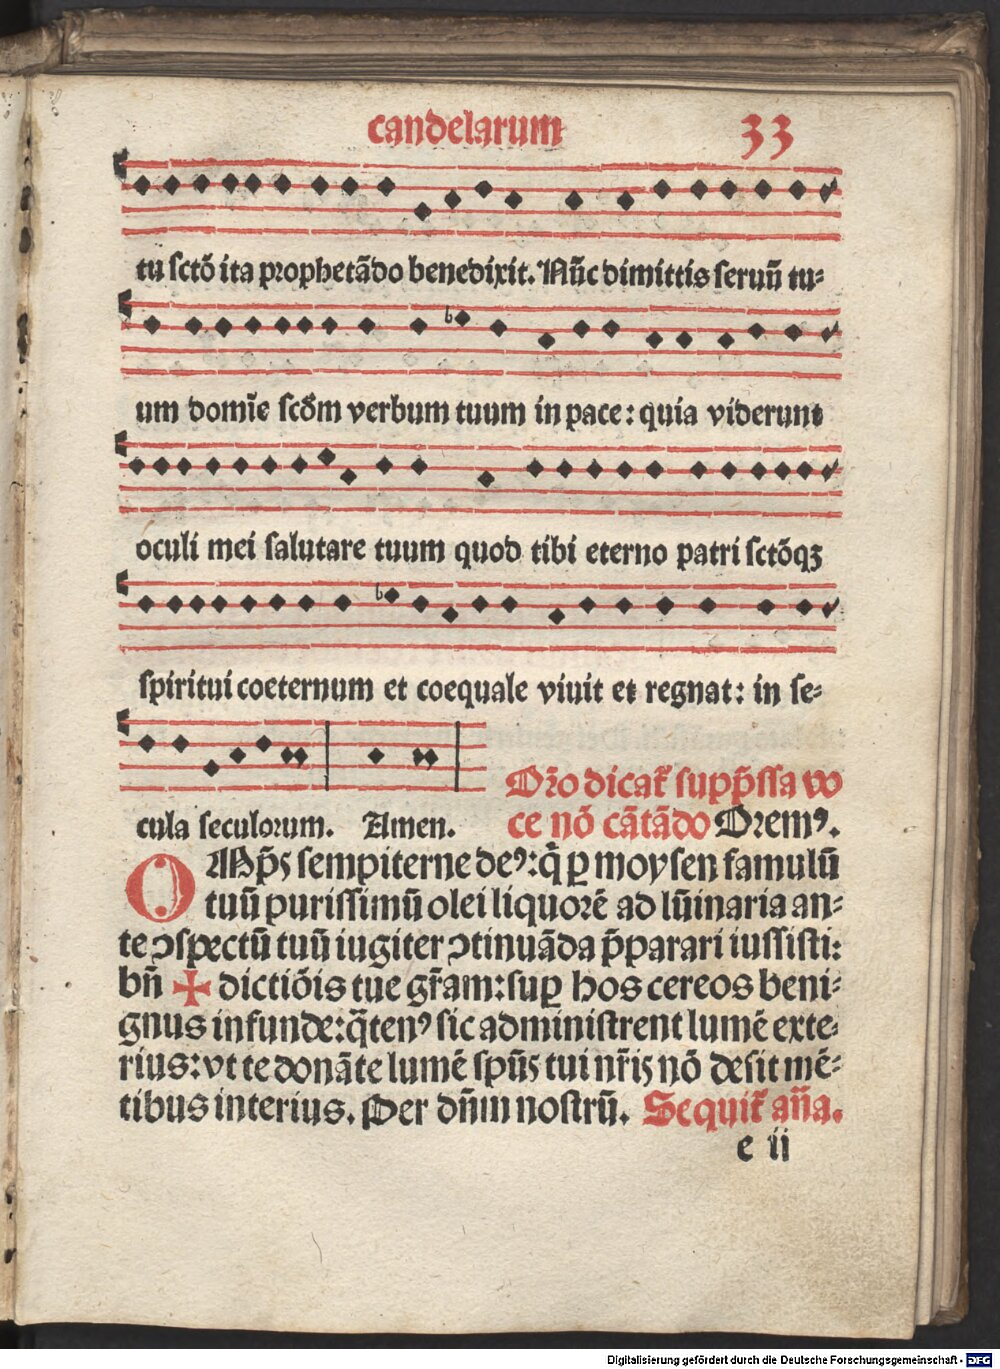 candelarum 33
tu sctō ita prophetādo benedixit. Nūc dimittis seruū tu⸗
um domīe scdm verbum tuum in pace: quia viderunt
oculi mei salutare tuum quod tibi eterno patri sctōqꝫ
spiritui coeternum et coequale viuit et regnat: in se⸗
Oro dicat̄ supp̄ssa vo
cula seculorum. Amen. ce nō cātādo Oremꝰ.
OMp̄s sempiterne deꝰ: q̄ ꝑ moysen famulū
tuū purissimū olei liquorē ad lūinaria an⸗
te ↄspectū tuū iugiter ↄtinuāda p̄parari iussisti:
bn̄ ✠ dictiōis tue gr̄am: suꝑ hos cereos beni⸗
gnus infunde: q̄tenꝰ sic administrent lumē exte⸗
rius: vt te donāte lumē spūs tui nr̄is nō desit mē⸗
tibus interius. Per dn̄m nostrū. Sequit̄ an̄a.
e ii
Digitalisierung gefördert durch die Deutsche Forschungsgemeinschaft - DFG